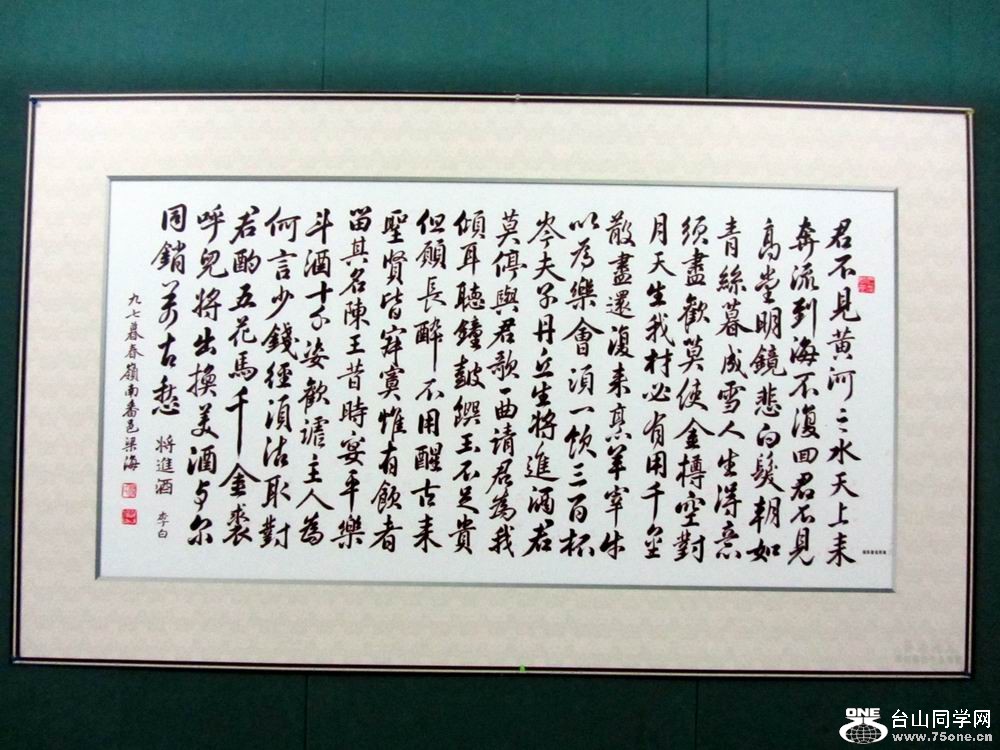 君不見黃河之水天上来
奔流到海不復回君不見
高堂明鏡悲白髮朝如
青絲暮成雪人生得意
須盡歡莫使金樽空對
月天生我材必有用千金
散盡還復来烹羊宰牛
以為樂會須一飲三百杯
岑夫子丹丘生將進酒君
莫停與君歌一曲請君為我
傾耳聽鐘鼓饌玉不足貴
但願長醉不用醒古来
聖賢皆寂寞惟有飲者
留其名陳王昔時宴平樂
斗酒十千姿歡謔主人為
何言少錢徑須沽取對
君酌五花馬千金裘
呼兒將出換美酒与尔
同銷萬古愁
將進酒 李白
九七暮春嶺南番邑梁海
ONE
台山同学网
www.75one.cn